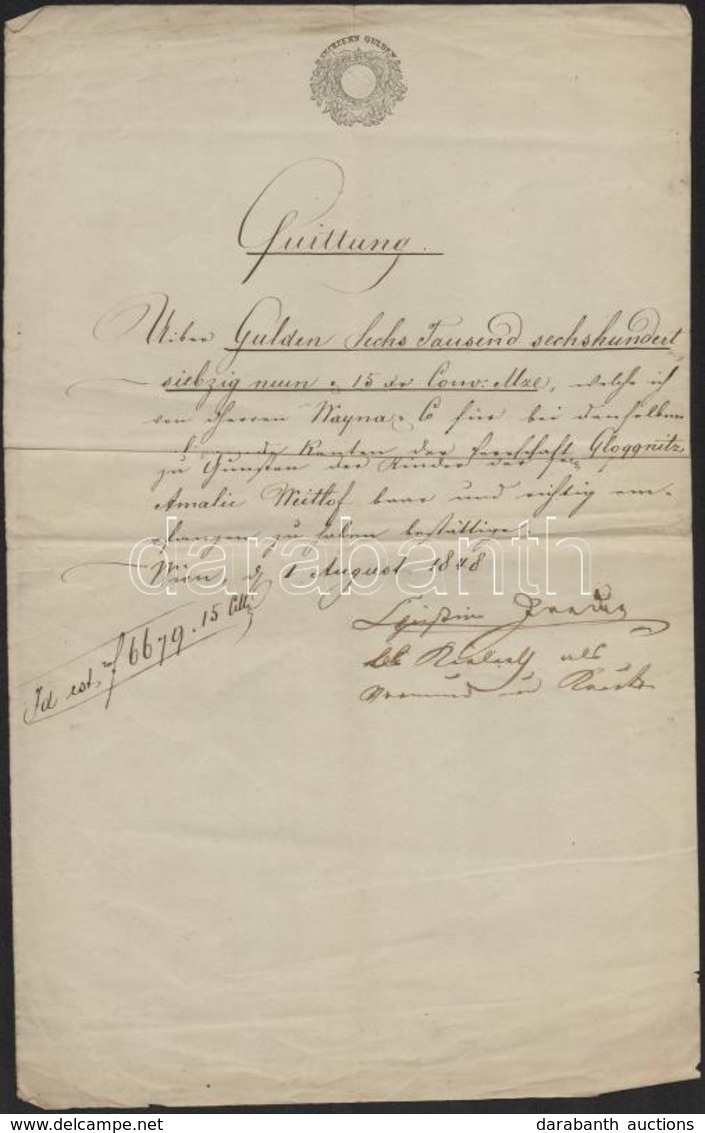 SECHZEHN GULDEN
Quittung.
Uiber Gulden Sechs Tausend sechshundert
siebzig neun & 15 xr Conv: Mze, welche ich
von Herren Wayna & C für bei denselben
Renten der Herrschaft Gloggnitz,
zu Gunsten der Kinder der
Amalie Mittlof baar und richtig em-
pfangen zu haben bestättige.
Wien, d 1 August 1848
Id est f 6679.15 CMz
als
Vormund
darabanth
darabanth auctions
www.darabanth.com